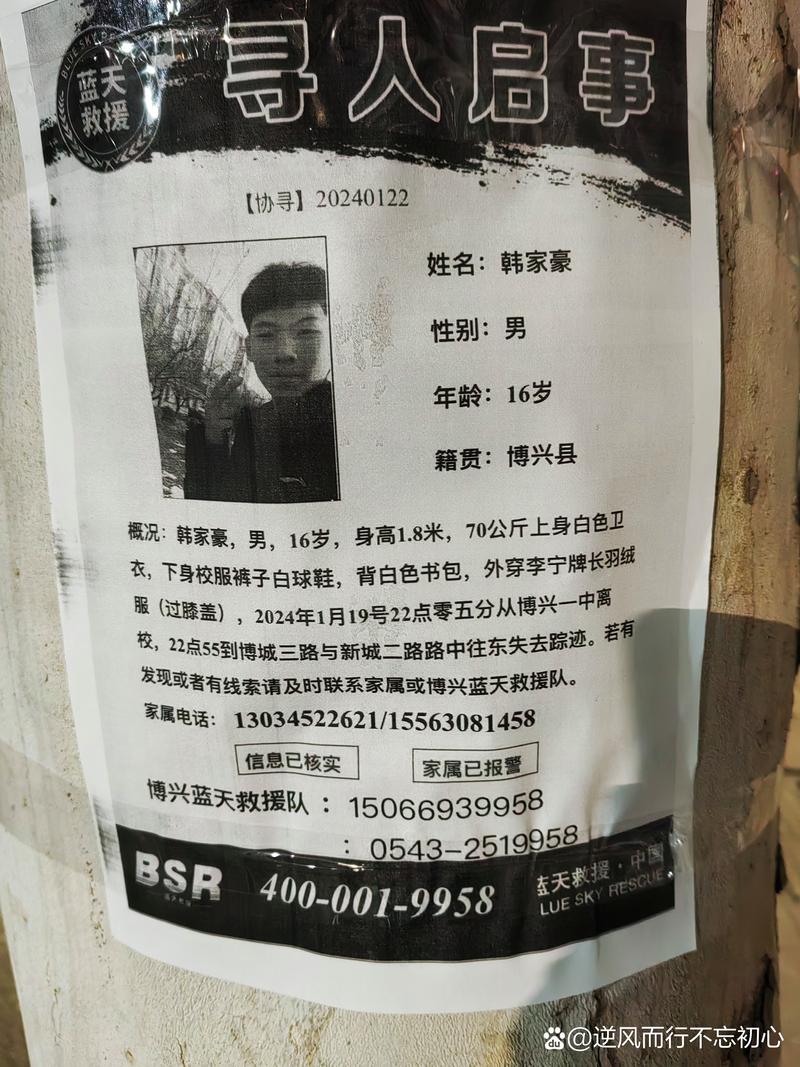 BLUE SKY R
蓝天
救援
寻人启事
【协寻】20240122
姓名：韩家豪
性别：男
年龄：16岁
籍贯：博兴县
概况：韩家豪，男，16岁，身高1.8米，70公斤上身白色卫
衣，下身校服裤子白球鞋，背白色书包，外穿李宁牌长羽绒
服（过膝盖），2024年1月19号22点零五分从博兴一中离
校，22点55到博城三路与新城二路路中往东失去踪迹。若有
发现或者有线索请及时联系家属或博兴蓝天救援队。
家属电话：13034522621/15563081458
信息已核实
家属已报警
博兴蓝天救援队：15066939958
：0543-2519958
BSR
蓝天救援
400-001-9958
蓝天救援·中国
LUE SKY RESCUE
du @逆风而行不忘初心